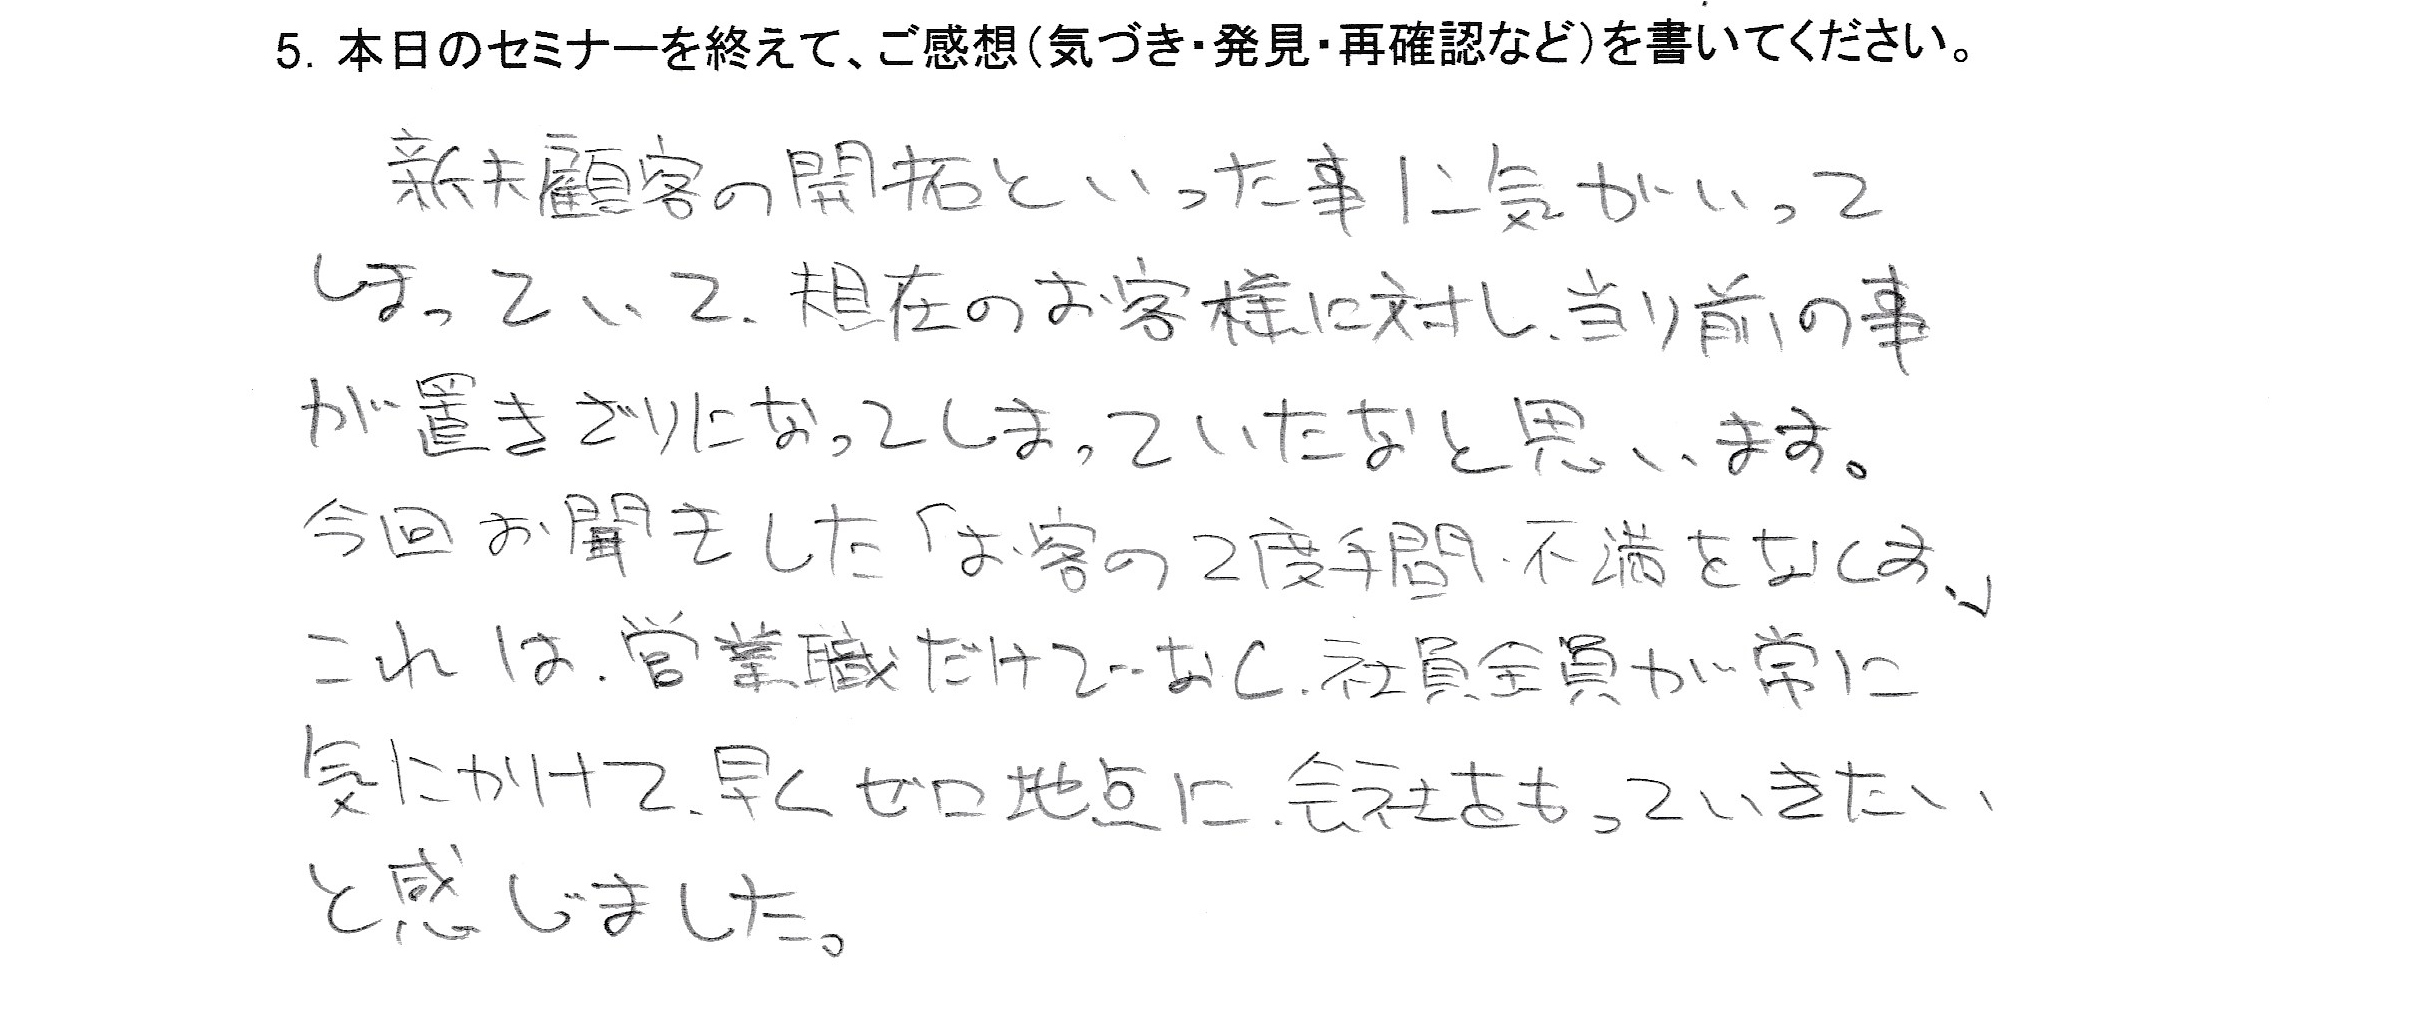 5. 本日のセミナーを終えて、ご感想（気づき・発見・再確認など）を書いてください。
新夫顧客の開拓といった事に気がいって
しまっていて、現在のお客様に対し、当り前の事
が置きざりになってしまっていたなと思います。
今回お聞きした「お客の2度手間・不満をなくす。」
これは、営業職だけでなく、社員全員が常に
気にかけて、早くゼロ地点に、会社をもっていきたい
と感じました。